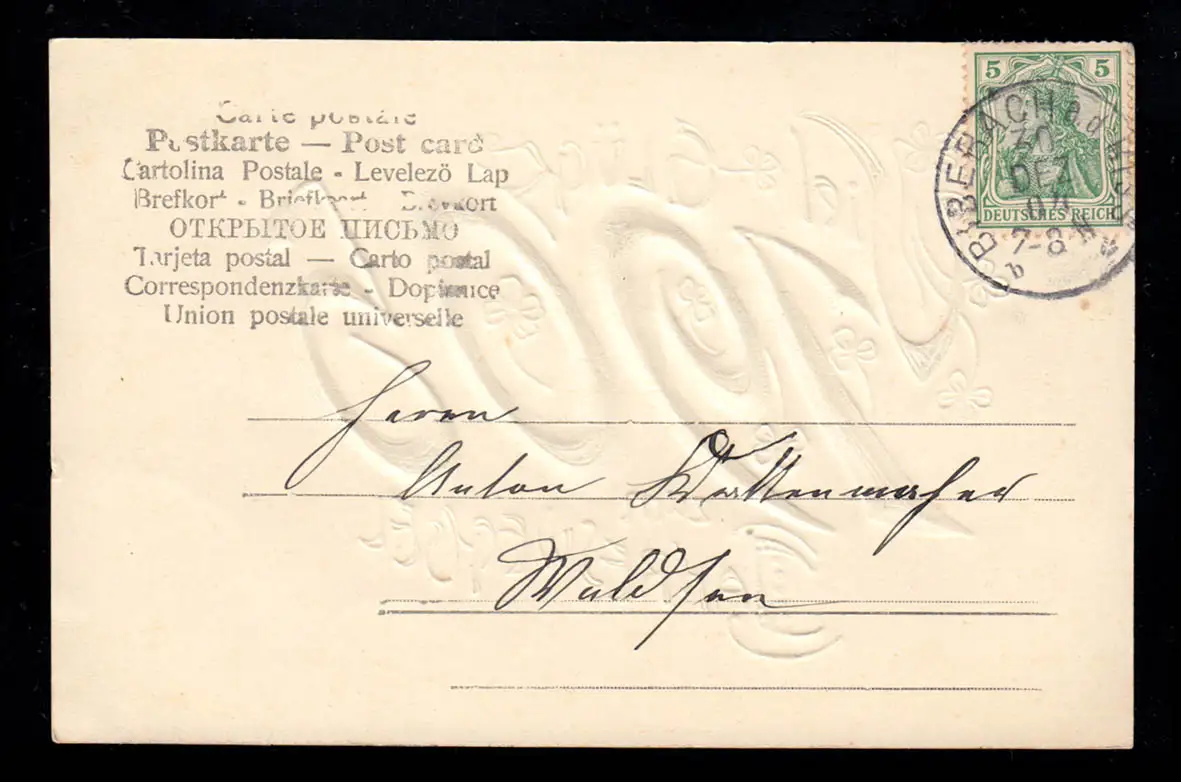 Carte postale
Postkarte — Post card
Cartolina Postale - Levelező Lap
Brefkort - Briefkaart - Brevkort
ОТКРЫТОЕ ПИСЬМО
Tarjeta postal — Carto postal
Correspondenzkarte - Dopisnice
Union postale universelle
5 5
DEUTSCHES REICH
BIBERACH a d
30
DEZ
7-8 N
b
Herrn
Anton
Waldsee